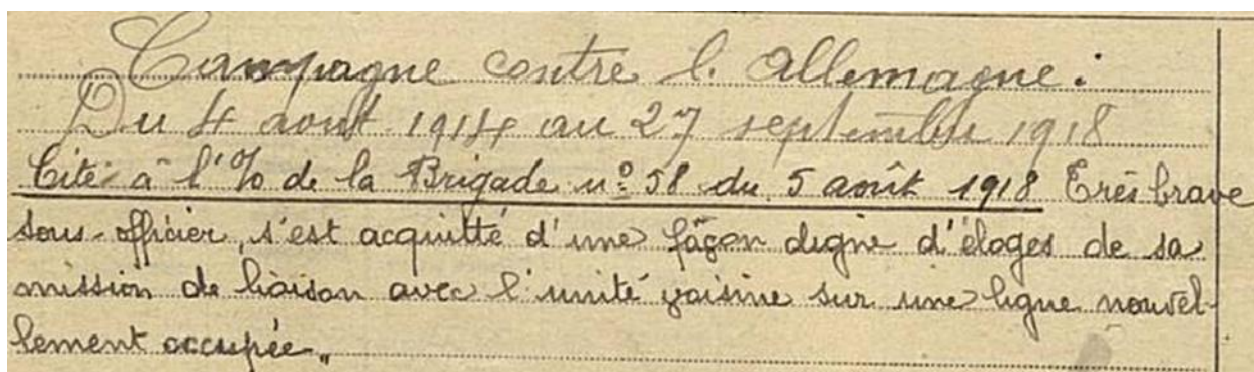 Campagne contre l'Allemagne :
Du 4 août 1914 au 27 septembre 1918
Cité à l'% de la Brigade nº 58 du 5 août 1918 Très brave
sous-officier, s'est acquitté d'une façon digne d'éloges de sa
mission de liaison avec l'unité voisine sur une ligne nouvel-
lement occupée "